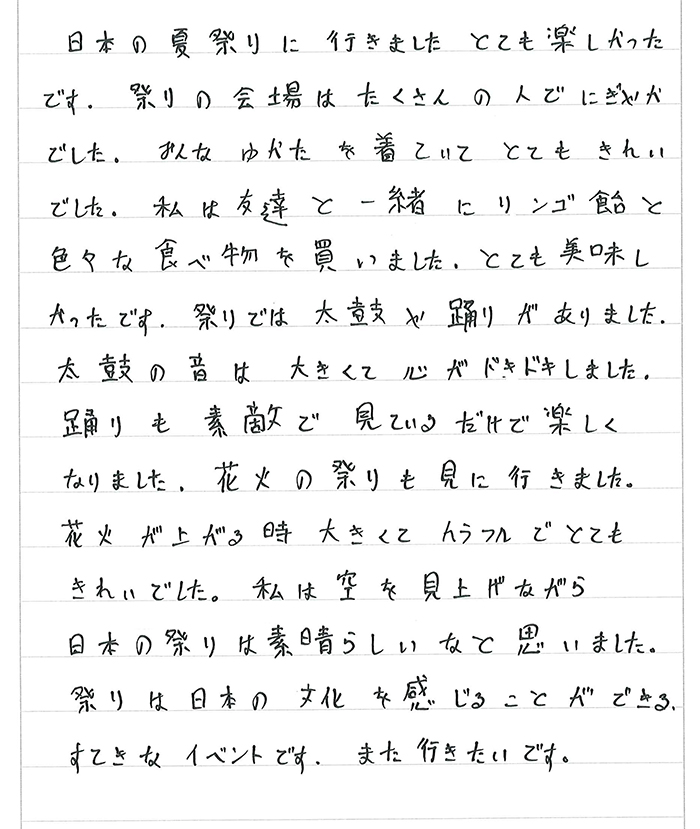 日本の夏祭りに 行きました とても楽しかった
です. 祭りの会場は たくさんの人で にぎやか
でした. みんな ゆかたを着ていて とても きれい
でした. 私は友達と一緒に リンゴ飴と
色々な食べ物を買いました. とても美味し
かったです. 祭りでは 太鼓や 踊りが ありました.
太鼓の音は 大きくて 心が ドキドキしました.
踊りも 素敵で 見ているだけで楽しく
なりました. 花火の祭りも見に行きました。
花火が上がる時 大きくて カラフルでとても
きれいでした。 私は空を見上げながら
日本の祭りは素晴らしいなと思いました。
祭りは日本の 文化を感じることができる,
すてきな イベントです. また行きたいです。